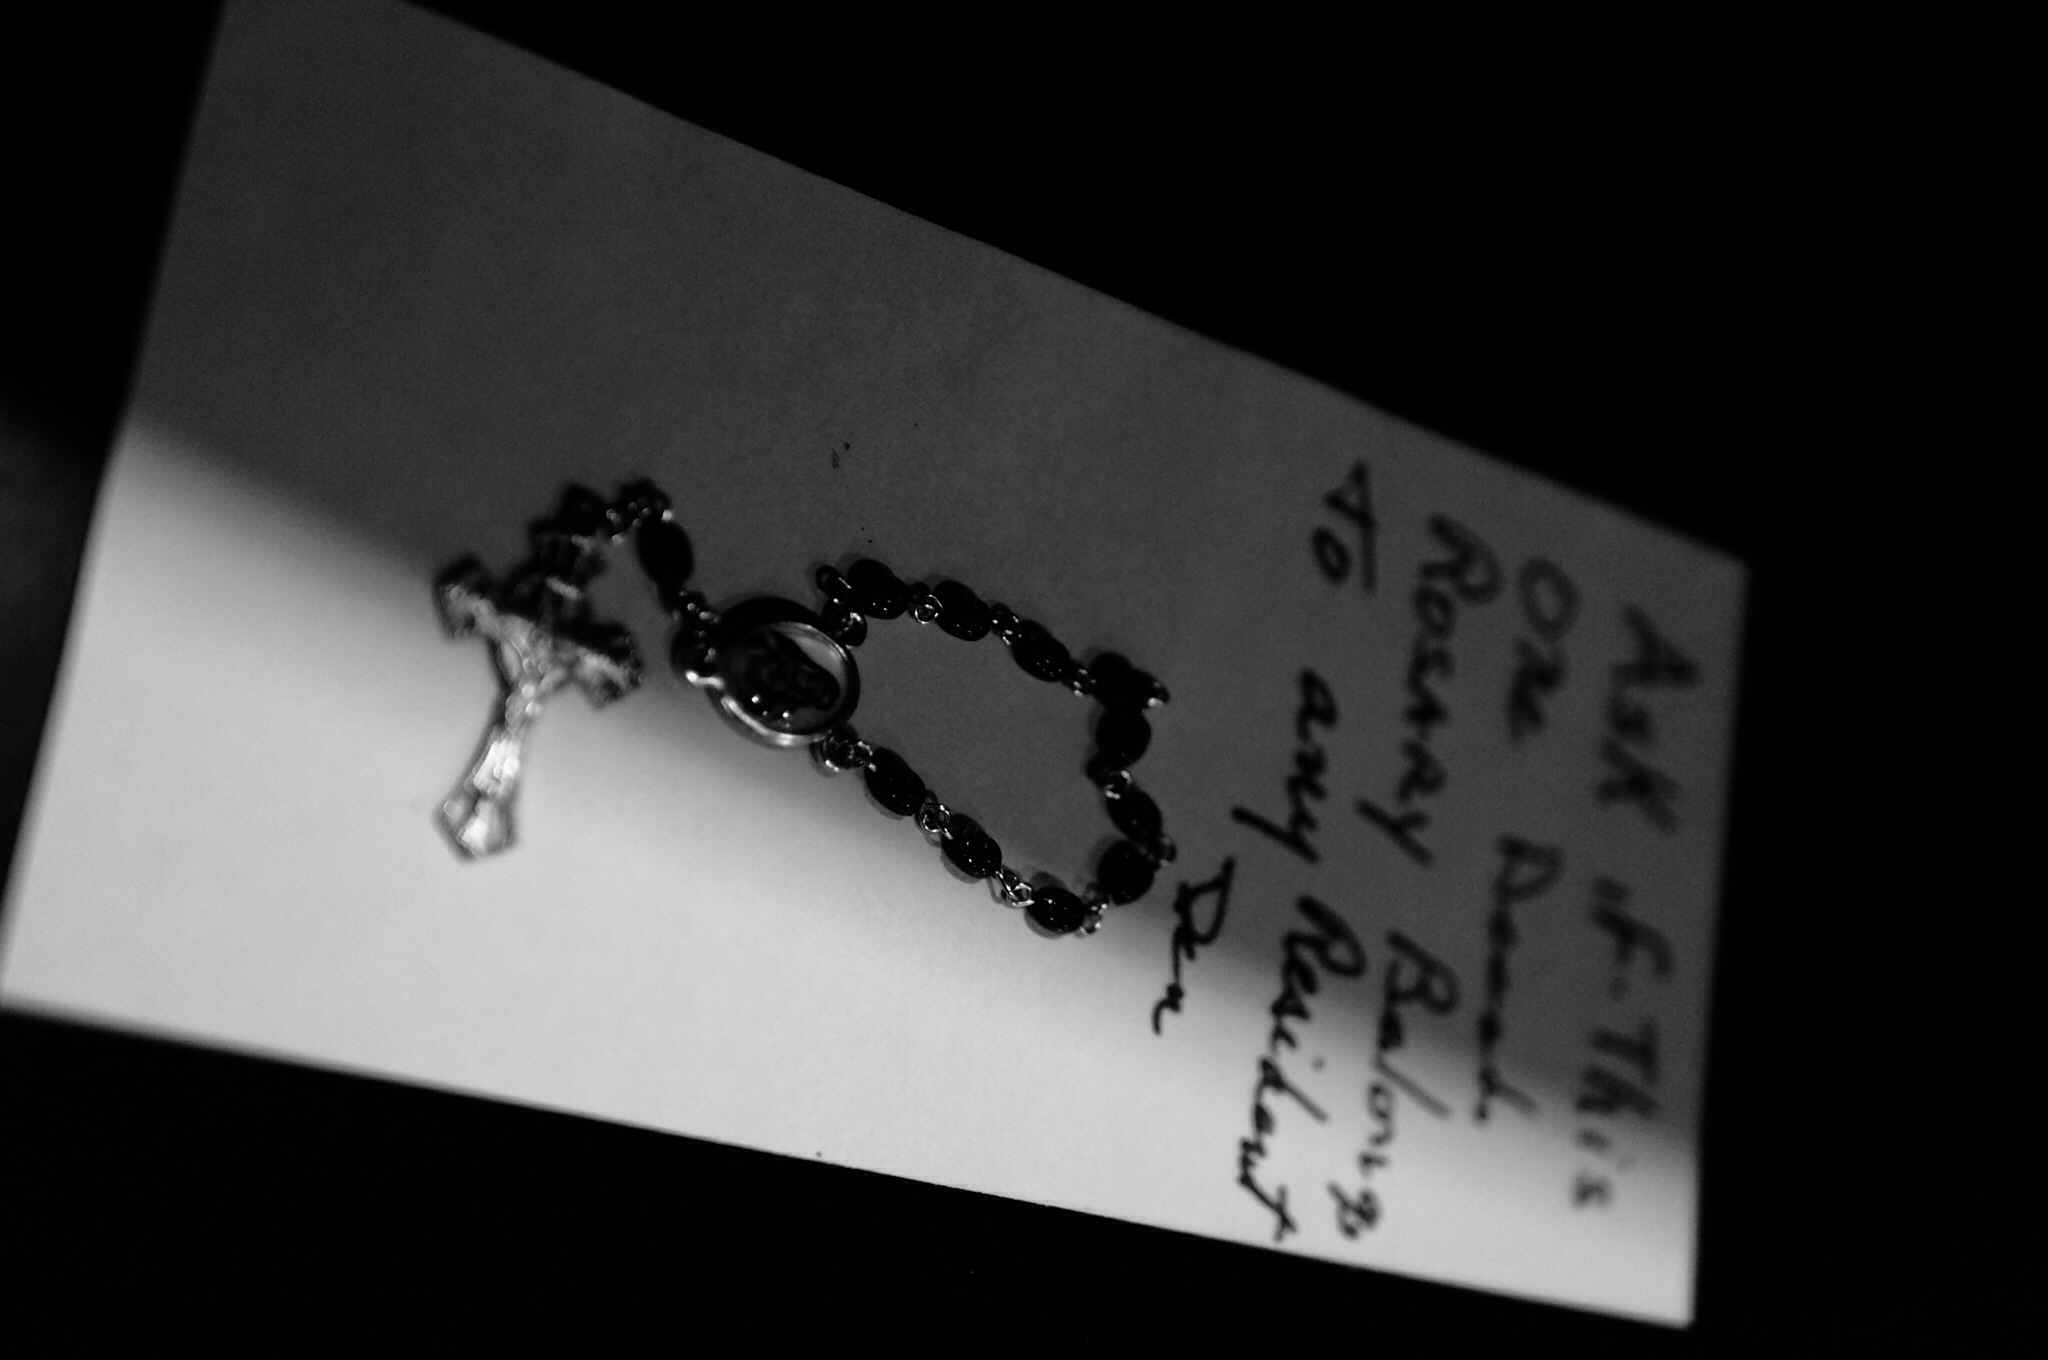 Ask if This
One Decade
Rosary Belongs
to any Resident